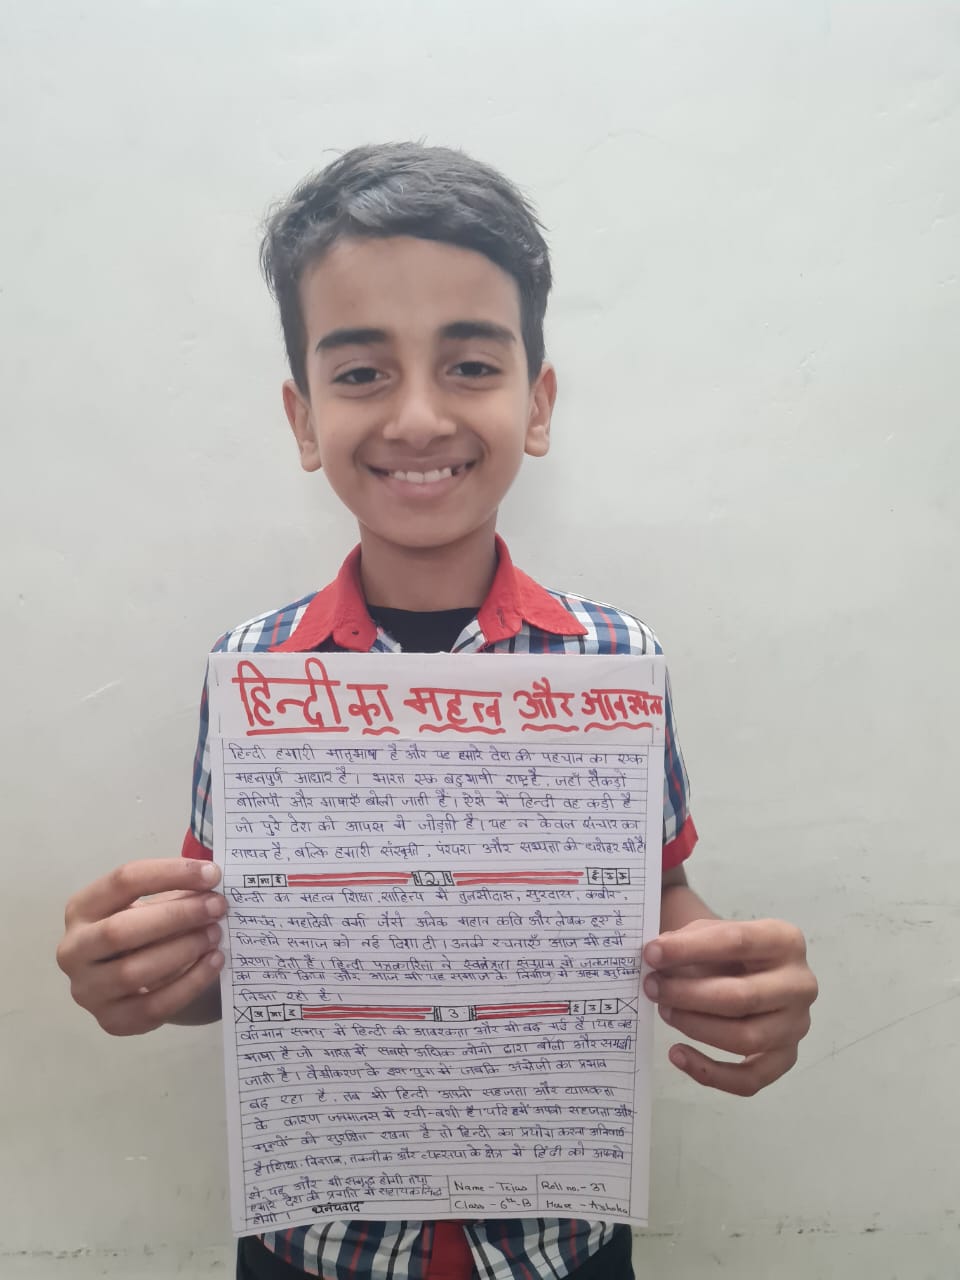 हिन्दी का महत्व और आवश्यता
हिन्दी हमारी मातृभाषा है और यह हमारे देश की पहचान का एक
महत्वपूर्ण आधार है। भारत एक बहुभाषी राष्ट्र है, जहाँ सैकड़ों
बोलियाँ और भाषाएँ बोली जाती हैं। ऐसे में हिन्दी वह कड़ी है
जो पुरे देश को आपस में जोड़ती है। यह न केवल संचार का
साधन है, बल्कि हमारी संस्कृती, परंपरा और सभ्यता की धरोहर भी है
अ आ इ 2 ई उ ऊ
हिन्दी का महत्व शिक्षा, साहित्य में तुलसीदास, सुरदास, कबीर,
प्रेमचंद, महादेवी वर्मा जैसे अनेक महान कवि और लेखक हुए है
जिन्होंने समाज को नई दिशा दी। उनकी रचनाएँ आज भी हमें
प्रेरणा देती हैं। हिन्दी पत्रकारिता ने स्वतंत्रता संग्राम में जनजागरण
का कार्य किया और आज भी यह समाज के निर्माण में अहम भुमिका
निभा रही है।
अ आ इ 3 ई उ ऊ
वर्तमान समय में हिन्दी की आवश्कता और भी बढ़ गई है। यह वह
भाषा है जो भारत में सबसे अधिक लोगो द्वारा बोली और समझी
जाती है। वैश्वीकरण के इस युग में जबकि अंग्रेजी का प्रभाव
बढ़ रहा है, तब भी हिन्दी अपनी सहजता और व्यापकता
के कारण जनमानस में रची-बसी है। यदि हमें अपनी सहजता और
मूल्यों को सुरक्षित रखना है तो हिन्दी का प्रयोग करना अनिवार्य
है। शिक्षा, विज्ञान, तकनीक और व्यवसाय के क्षेत्र में हिंदी को अपनाने
से यह और भी समृद्ध होगी तथा
हमारे देश की प्रगति में सहायक सिद्ध
होगी। धन्यवाद
Name - Tejus Roll no. - 37
Class - 6th-B House - Ashoka